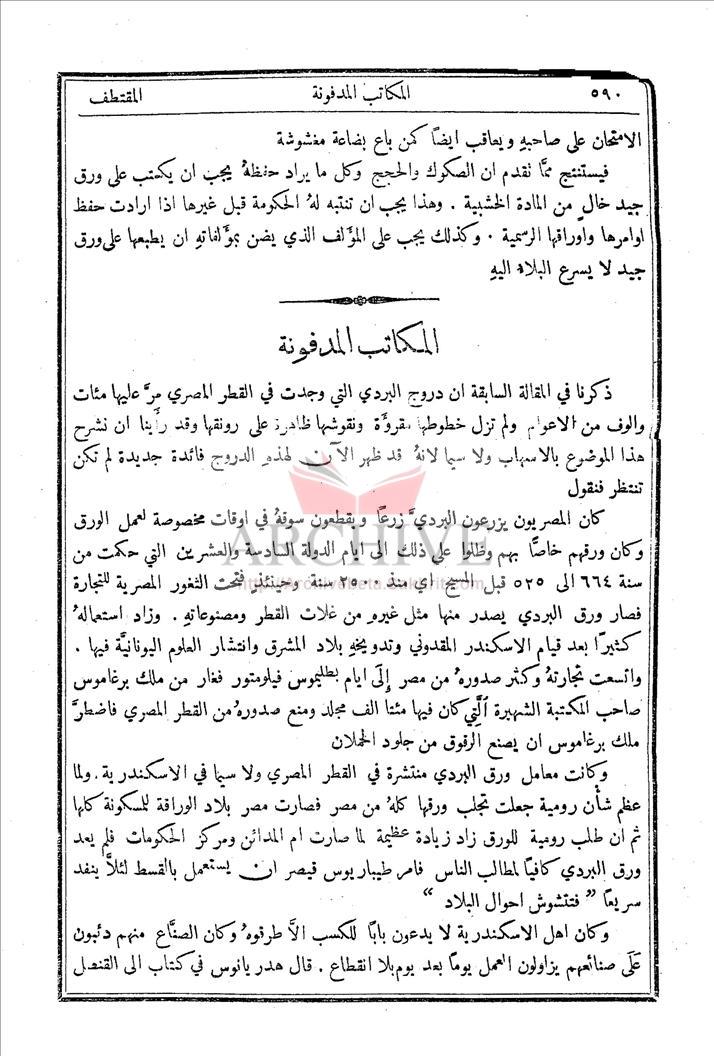 ٥٩٠ المكاتب المدفونة المقتطف
الامتحان على صاحبهِ ويعاقب ايضًا كمن باع بضاعة مغشوشة
فيستنتج ممَّا تقدم ان الصكوك والحجج وكل ما يراد حفظهُ يجب ان يكتب على ورق
جيد خالٍ من المادة الخشبية . وهذا يجب ان تنتبه لهُ الحكومة قبل غيرها اذا ارادت حفظ
اوامرها واوراقها الرسمية . وكذلك يجب على المؤلف الذي يضن بمؤلفاتهِ ان يطبعها على ورق
جيد لا يسرع البلاء اليهِ
المكاتب المدفونة
ذكرنا في المقالة السابقة ان دروج البردي التي وجدت في القطر المصري مرَّ عليها مئات
والوف من الاعوام ولم تزل خطوطها مقروَّة ونقوشها ظاهرة على رونقها وقد رأينا ان نشرح
هذا الموضوع بالاسهاب ولا سيما لانهُ قد ظهر الآن لهذه الدروج فائدة جديدة لم تكن
تنتظر فنقول
كان المصريون يزرعون البرديَّ زرعًا ويقطعون سوقهُ في اوقات مخصوصة لعمل الورق
وكان ورقهم خاصًّا بهم وظلوا على ذلك الى ايام الدولة السادسة والعشرين التي حكمت من
سنة ٦٦٤ الى ٥٢٥ قبل المسيح اي منذ ٢٥٠٠ سنة وحينئذٍ فتحت الثغور المصرية للتجارة
فصار ورق البردي يصدر منها مثل غيرهِ من غلات القطر ومصنوعاتهِ . وزاد استعمالهُ
كثيرًا بعد قيام الاسكندر المقدوني وتدويخهِ بلاد المشرق وانتشار العلوم اليونانيَّة فيها .
واتسعت تجارتهُ وكثر صدورهُ من مصر إلَى ايام بطليموس فيلومتور فغار من ملك برغاموس
صاحب المكتبة الشهيرة الَّتي كان فيها مئتا الف مجلد ومنع صدورهُ من القطر المصري فاضطرَّ
ملك برغاموس ان يصنع الرقوق من جلود الحملان
وكانت معامل ورق البردي منتشرة في القطر المصري ولا سيما في الاسكندرية . ولما
عظم شأن رومية جعلت تجلب ورقها كلهُ من مصر فصارت مصر بلاد الوراقة للمسكونة كلها
ثم ان طلب رومية للورق زاد زيادة عظيمة لما صارت ام المدائن ومركز الحكومات فلم يعد
ورق البردي كافيًا لمطالب الناس فامر طيباريوس قيصر ان يستعمل بالقسط لئلاَّ ينفد
سريعًا " فتتشوش احوال البلاد "
وكان اهل الاسكندرية لا يدعون بابًا للكسب الاَّ طرقوهُ وكان الصنَّاع منهم دئبون
عَلَى صنائعهم يزاولون العمل يومًا بعد يوم بلا انقطاع . قال هدريانوس في كتاب الى القنصل
ARCHIVE